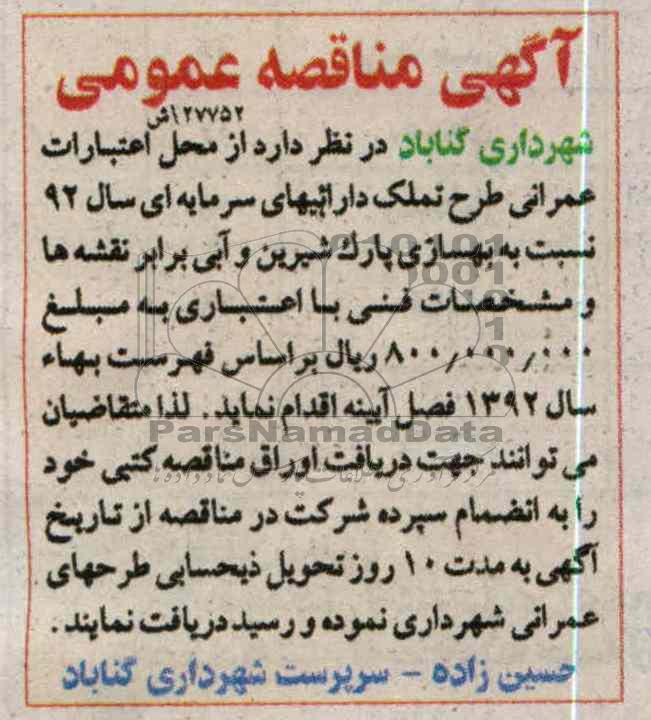 آگهی مناقصه عمومی
۱۲۷۷۵۲/ش
شهرداری گناباد در نظر دارد از محل اعتبارات
عمرانی طرح تملک دارائیهای سرمایه ای سال ۹۲
نسبت به بهسازی پارك شیرین و آبی برابر نقشه ها
و مشخصات فنی با اعتباری به مبلغ
۸۰۰/۰۰۰/۰۰۰ ریال براساس فهرست بهاء
سال ۱۳۹۲ فصل آیینه اقدام نماید. لذا متقاضیان
ParsNamadData
می توانند جهت دریافت اوراق مناقصه کتبی خود
را به انضمام سپرده شرکت در مناقصه از تاریخ
آگهی به مدت ۱۰ روز تحویل ذیحسابی طرحهای
عمرانی شهرداری نموده و رسید دریافت نمایند.
حسین زاده - سرپرست شهرداری گناباد